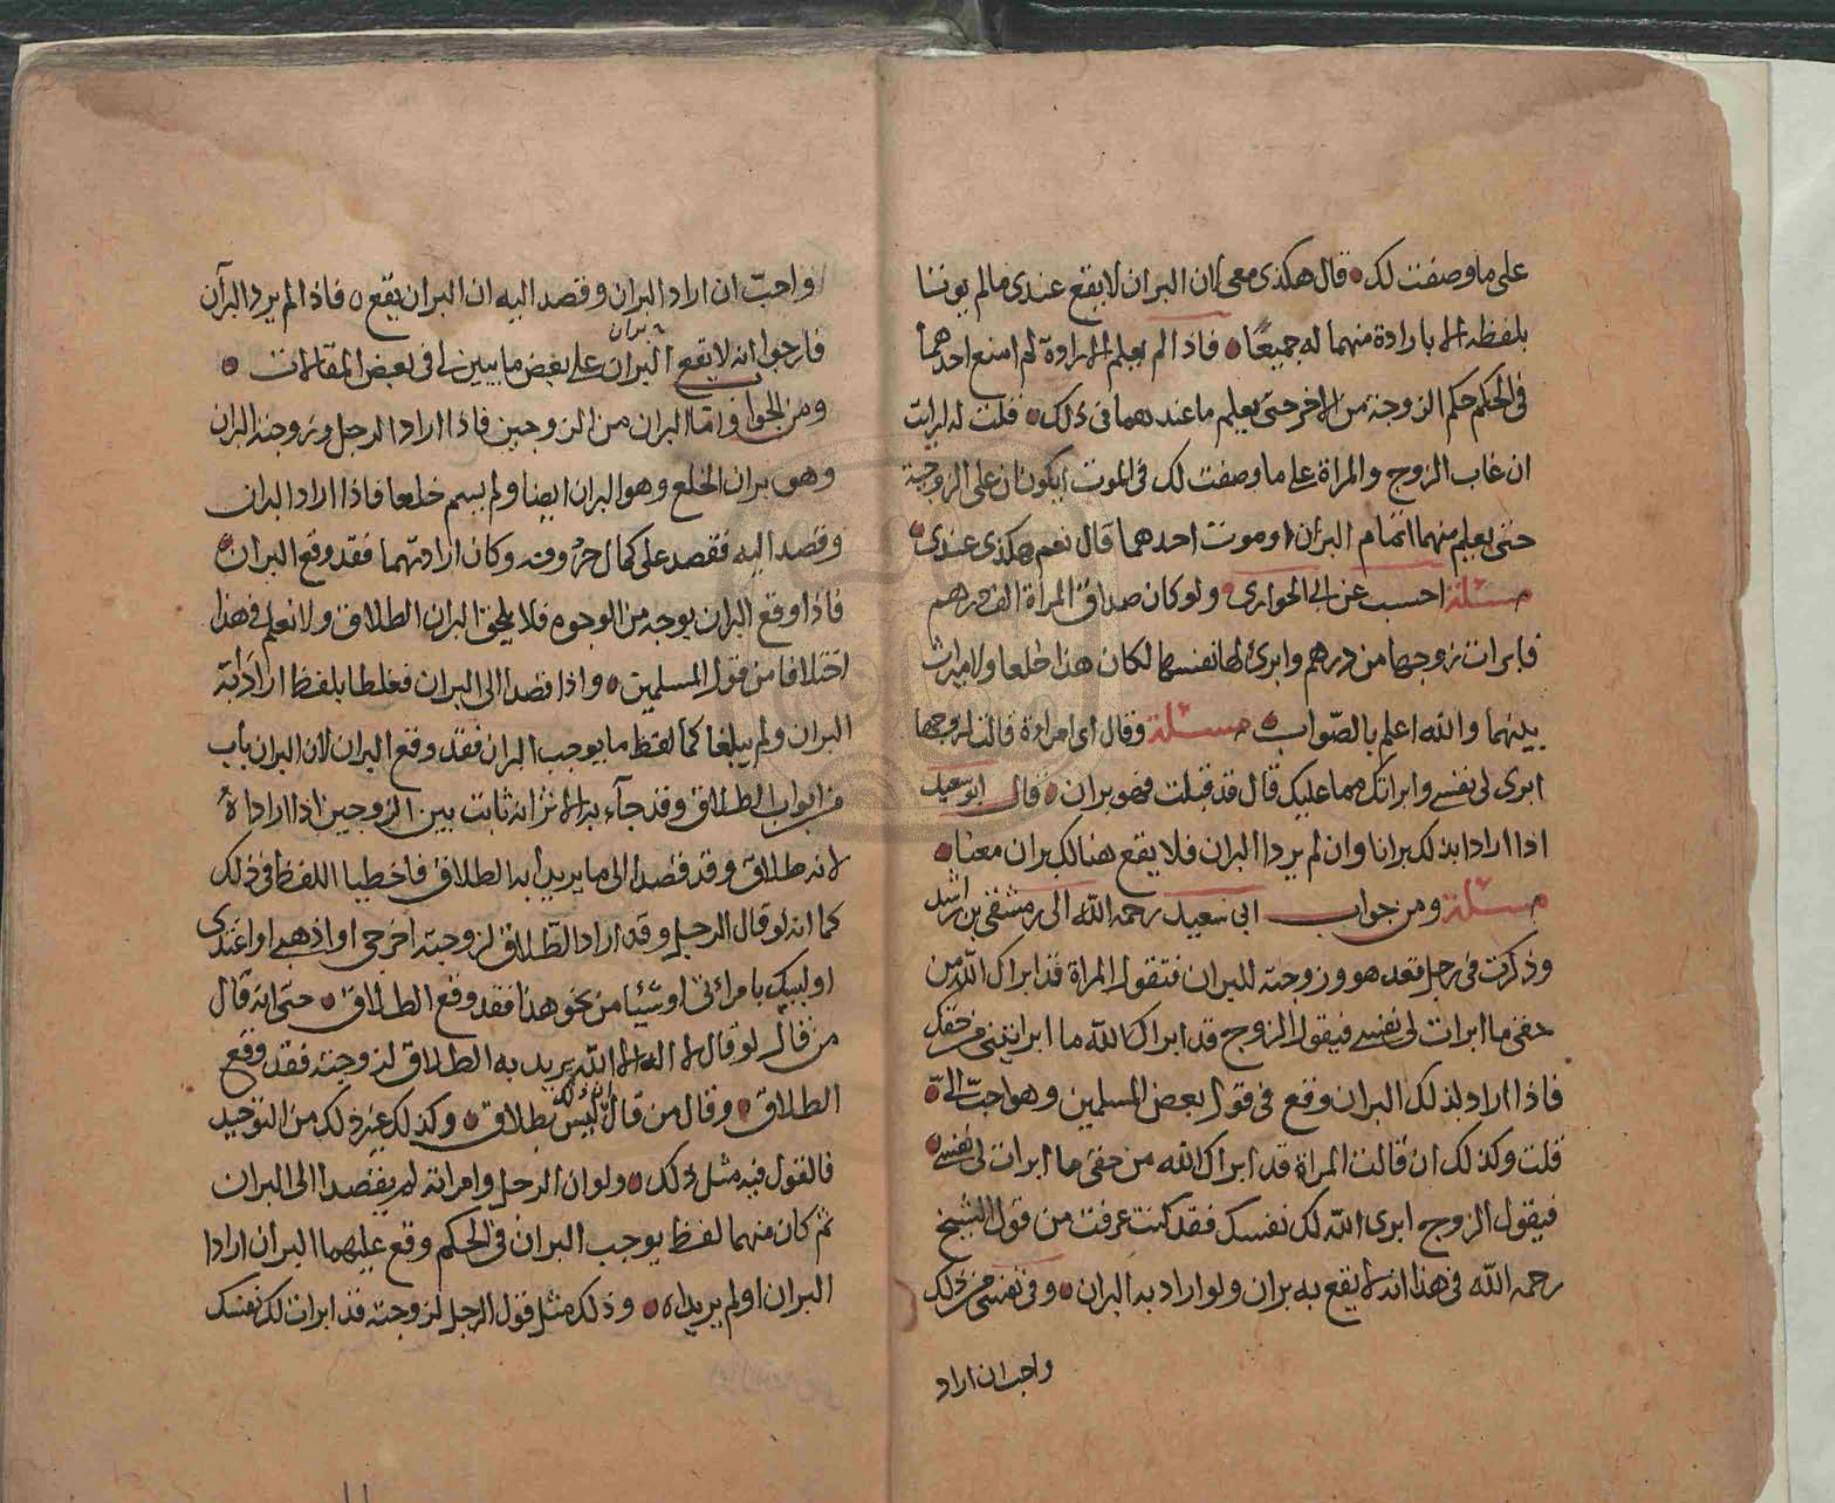 على ما وصفت لك قال هكذى معى ان البران لا يقع عندى مالم
بلفظه الا بارادة منهما له جميعا فاذا لم يعلم الارادة لم امنع احدهما
فى الحكم حكم الزوجة من الاخر حتى يعلم ما عندهما فى ذلك قلت له ارايت
ان غاب الزوج والمراة على ما وصفت لك فى الموت ايكونان على الزوجية
حتى يعلم منهما اتمام البران او موت احدهما قال نعم هكذى عندى
مسئلة احسب عن ابى الحوارى ولو كان صداق المراة الف درهم
فابرات زوجها من درهم وابرئ لها نفسها لكان هذا خلعا ولا ميراث
بينهما والله اعلم بالصواب مسئلة وقال اى امراة قالت لزوجها
ابرى لى نفسى وابراتك مما عليك قال قد قبلت فهو بران قال ابو سعيد
اذا ارادا بذلك برانا وان لم يردا البران فلا يقع هنالك بران معنا
مسئلة ومن جواب ابى سعيد رحمه الله الى رمشقى بن راشد
وذكرت فى رجل قعد هو وزوجته للبران فتقول المراة قد ابراك الله من
حقى ما ابرات لى نفسى فيقول الزوج قد ابراك الله ما ابراتينى من حقك
فاذا اراد بذلك البران وقع فى قول بعض المسلمين وهو احب الى
قلت وكذلك ان قالت المراة قد ابراك الله من حقى ما ابرات لى نفسى
فيقول الزوج ابرى الله لك نفسك فقد كنت عرفت من قول الشيخ
رحمه الله فى هذا انه لا يقع به بران ولو اراد به البران وفى نفسى من ذلك
واحب ان اراد
واحب ان اراد البران وقصد اليه ان البران يقع فاذا لم يرد البران
فارجوا انه لا يقع البران على بعض ما يبين لى فى بعض المقالات
بران
ومن الجواب واما البران من الزوجين فاذا اراد الرجل وزوجته البران
وهو بران الخلع وهو البران ايضا ولم يسم خلعا فاذا اراد البران
وقصد اليه فقصد على كمال حروفه وكان ارادتهما فقد وقع البران
فاذا وقع البران بوجه من الوجوه فلا يلحق البران الطلاق ولا نعلم فى هذا
اختلافا من قول المسلمين واذا قصدا الى البران فغلطا بلفظ ارادا به
البران ولم يبلغا كما لفظ ما يوجب البران فقد وقع البران لان البران باب
من ابواب الطلاق وقد جاء به الاثر انه ثابت بين الزوجين اذا اراداه
لانه طلاق وقد قصدا الى ما يريدا به الطلاق فاخطيا اللفظ فى ذلك
كما انه لو قال الرجل وقد اراد الطلاق لزوجته اخرجى او اذهبى او اعتدى
او لبيك يا مراتى او شيئا من نحو هذا فقد وقع الطلاق حتى انه قال
من قال لو قال لا اله الا الله يريد به الطلاق لزوجته فقد وقع
الطلاق وقال من قال ان ذلك ليس بطلاق وكذلك غير ذلك من التوحيد
فالقول فيه مثل ذلك ولو ان الرجل وامراته لم يقصدا الى البران
ثم كان منهما لفظ يوجب البران فى الحكم وقع عليهما البران ارادا
البران او لم يريداه وذلك مثل قول الرجل لزوجته قد ابرات لك نفسك